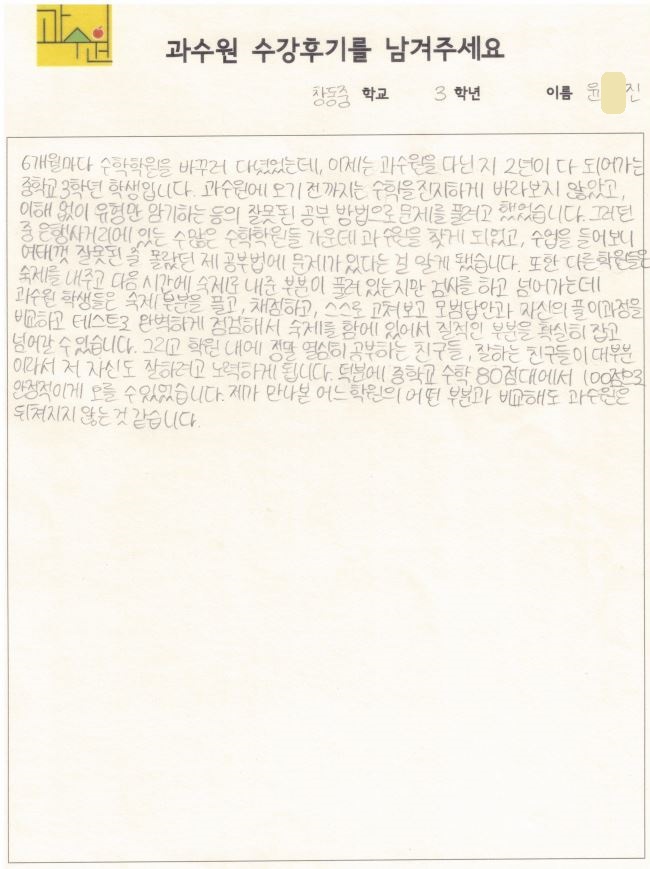 과수원
과수원 수강후기를 남겨주세요
창동중 학교 3 학년 이름 윤 진
6개월마다 수학학원을 바꾸러 다녔었는데, 이제는 과수원을 다닌 지 2년이 다 되어가는
중학교 3학년 학생입니다. 과수원에 오기 전까지는 수학을 진지하게 바라보지 않았고,
이해 없이 유형만 암기하는 등의 잘못된 공부 방법으로 문제를 풀려고 했었습니다. 그러던
중 은행사거리에 있는 수많은 수학학원들 가운데 과수원을 찾게 되었고, 수업을 들어보니
여태껏 잘못된 줄 몰랐던 제 공부법에 문제가 있다는 걸 알게 됐습니다. 또한 다른학원들은
숙제를 내주고 다음 시간에 숙제로 내준 부분이 풀려 있는지만 검사를 하고 넘어가는데
과수원 학생들은 숙제 부분을 풀고, 채점하고, 스스로 고쳐보고 모범답안과 자신의 풀이과정을
비교하고 테스트로 완벽하게 점검해서 숙제를 함에 있어서 질적인 부분을 확실히 잡고
넘어갈 수 있습니다. 그리고 학원 내에 정말 열심히 공부하는 친구들, 잘하는 친구들이 대부분
이라서 저 자신도 잘하려고 노력하게 됩니다. 덕분에 중학교 수학 80점대에서 100점으로
안정적이게 오를 수 있었습니다. 제가 만나본 어느 학원의 어떤 부분과 비교해도 과수원은
뒤쳐지지 않는 것 같습니다.